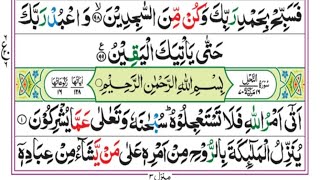 فَسَبِّحْ بِحَمْدِ رَبِّكَ وَكُنْ مِّنَ السّٰجِدِيْنَ ﴿٩٨﴾ وَاعْبُدْ رَبَّكَ
حَتّٰى يَاْتِيَكَ الْيَقِيْنُ ﴿٩٩﴾
بِسْمِ اللّٰهِ الرَّحْمٰنِ الرَّحِيْمِ
اَتٰٓى اَمْرُ اللّٰهِ فَلَا تَسْتَعْجِلُوْهُ ؕ سُبْحٰنَهٗ وَتَعٰلٰى عَمَّا يُشْرِكُوْنَ ﴿١﴾
يُنَزِّلُ الْمَلٰٓئِكَةَ بِالرُّوْحِ مِنْ اَمْرِهٖ عَلٰى مَنْ يَّشَآءُ مِنْ عِبَادِهٖۤ
منزل ٣